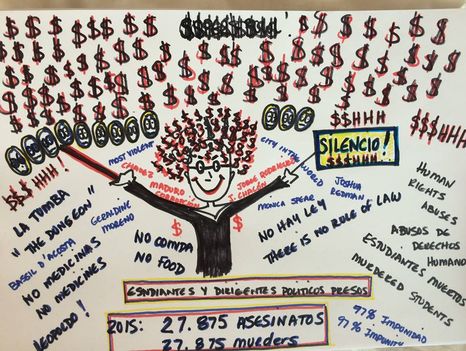 $$$HHH!
SILENCIO!
$$$HHH
$$HHH
$$$HHH
$$$HHH!
MOST VIOLENT
CITY IN THE WORLD
CHAVEZ
MADURO
CORRUPCION
JORGE RODRIGUEZ
J. CHACON
JOSHUA
REDMAN
MONICA SPEAR
LA TUMBA
"THE DUNGEON"
GERALDINE
MORENO
BASSIL D'ACOSTA
NO MEDICINAS
NO MEDICINES
LEOPOLDO!
NO COMIDA
NO FOOD
NO HAY LEY
THERE IS NO RULE OF LAW
HUMAN
RIGHTS
ABUSES
ABUSOS DE
DERECHOS
HUMANO
ESTUDIANTES MUERTOS
MURDERED STUDENTS
ESNDIANTES Y DIRIGENTES POLITICOS PRESOS
2015: 27.875 ASESINATOS
27.875 murders
97% IMPUNIDAD
97% IMPUNITY